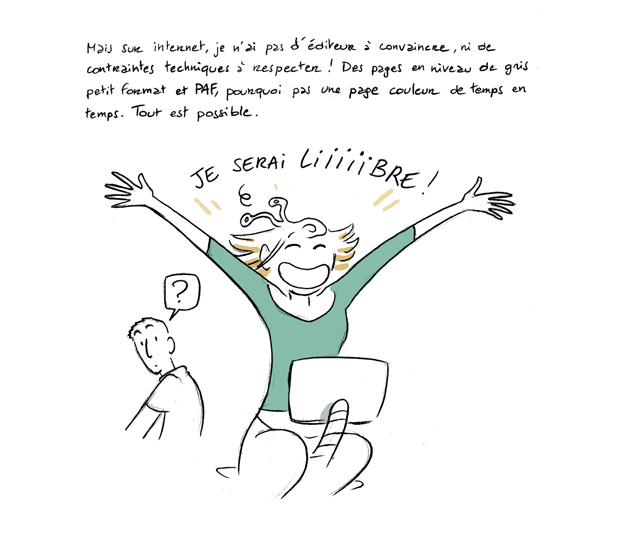 Mais sur internet, je n'ai pas d'éditeur à convaincre, ni de
contraintes techniques à respecter ! Des pages en niveau de gris
petit format et PAF, pourquoi pas une page couleur de temps en
temps. Tout est possible.
JE SERAI LiiiiiBRE !
?